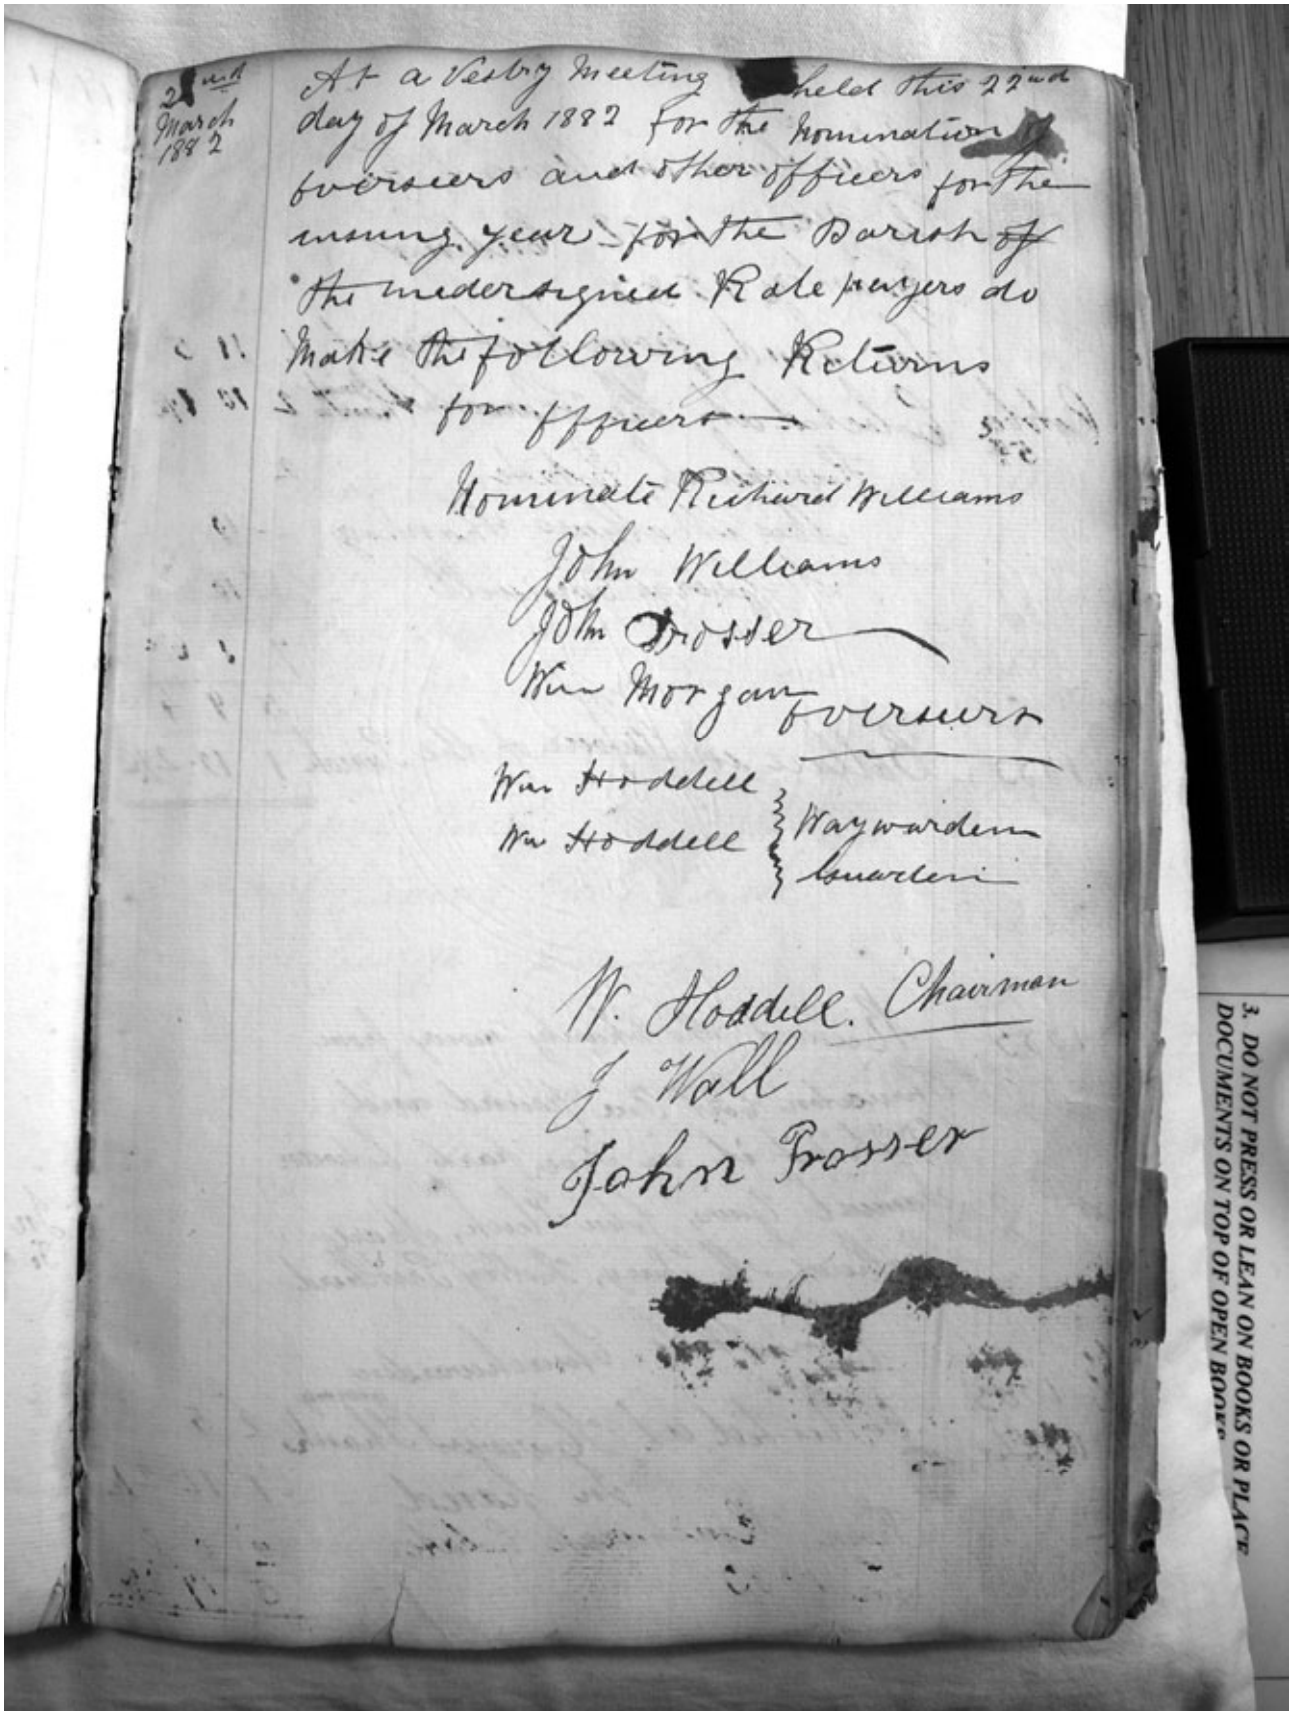 22nd
March
1882
At a Vestry Meeting held this 22nd
day of March 1882 for the Nomination of
Overseers and other officers for the
ensuing year for the Parish of
the undersigned Rate payers do
Make the following Returns
for Officers
Nominate Richard Williams
John Williams
John Prosser
Wm Morgan
Overseers
Wm Hoddell
Wm Hoddell
Waywarden
Guardian
W. Hoddell. Chairman
J Wall
John Prosser
3. DO NOT PRESS OR LEAN ON BOOKS OR PLACE
DOCUMENTS ON TOP OF OPEN BOOKS